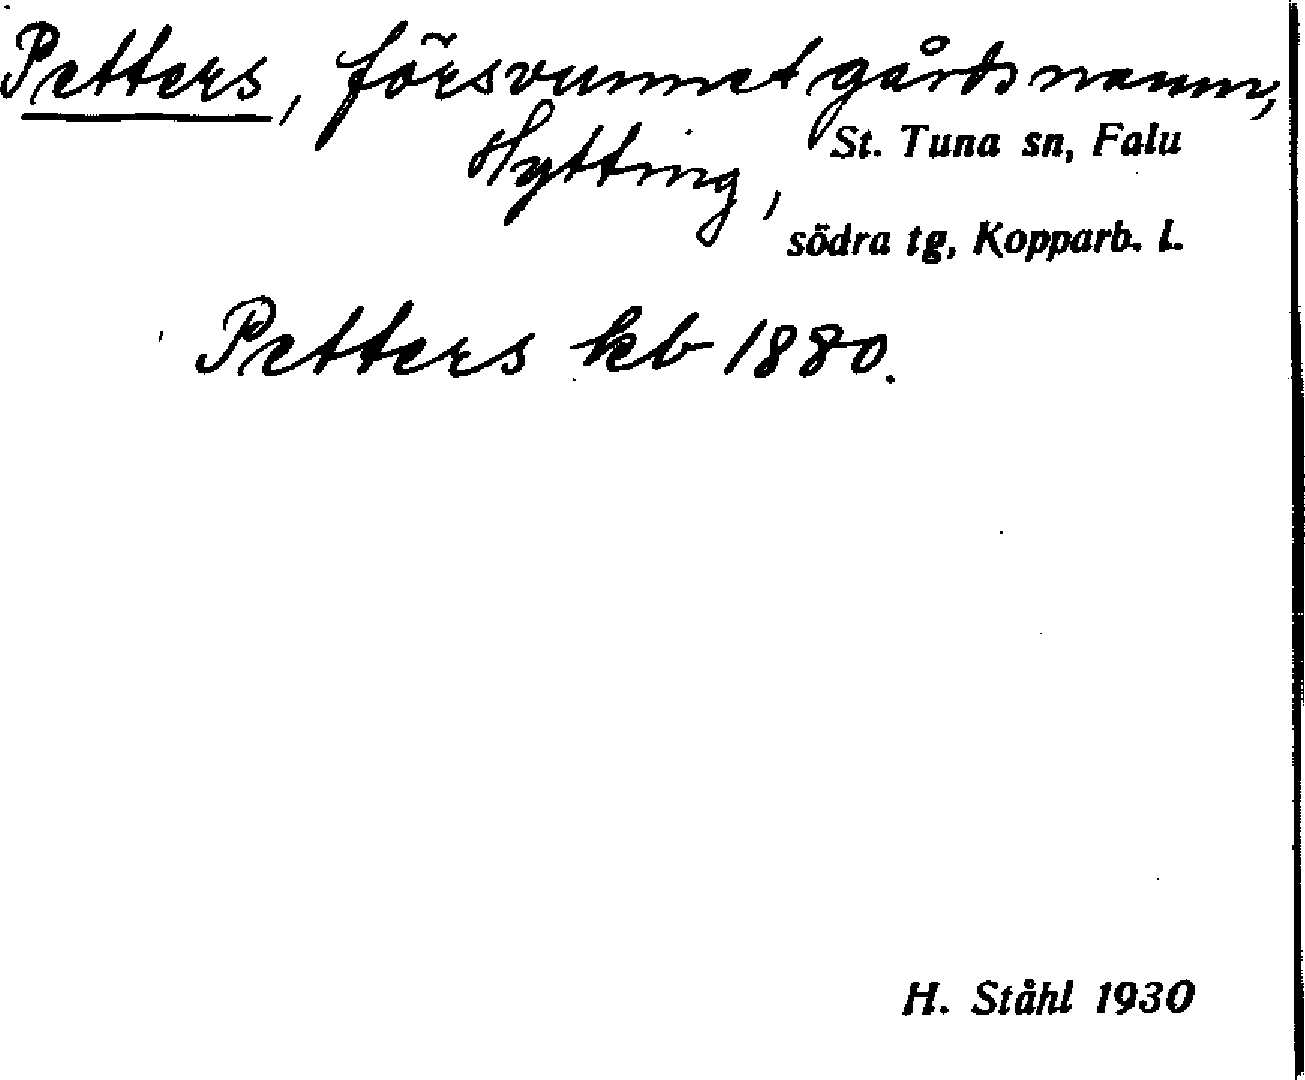 Petters, försvunnet gårdsnamn,
Hytting, St. Tuna sn, Falu
södra tg, Kopparb. l.
Petters kb 1880.
H. Ståhl 1930